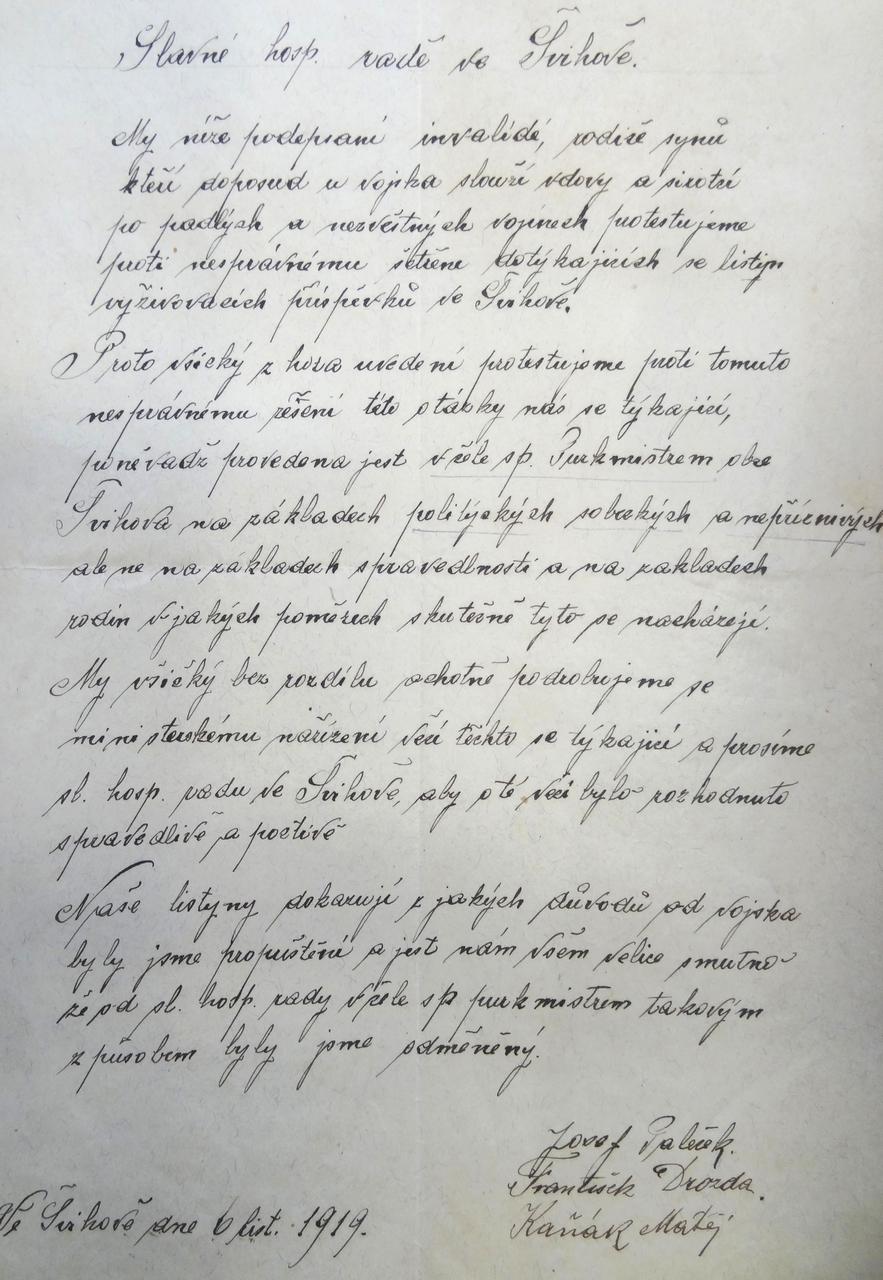 Slavné hosp. radě ve Švihově.
My níže podepsaní invalidé, rodiče synů
kteří doposud u vojska slouží vdovy a sirotci
po padlých a nezvěstných vojínech protestujeme
proti nesprávnému šetřene dotýkajicích se listin
vyživovacích příspěvků ve Švihově.
Proto všický z hora uvedení protestujeme proti tomuto
nesprávnému řěšení této otázky nás se týkající,
poněvadž provedena jest v čele sp. Purkmistrem obce
Švihova na základech polityckých sobeckých a nepříznivých
ale ne na základech spravedlnosti a na zakladech
rodin v jakých poměrech skutečně tyto se nacházejí.
My všičký bez rozdílu ochotně podrobujeme se
ministerskému nařízení věcí těchto se týkající a prosíme
sl. hosp. radu ve Švihově, aby o té věci bylo rozhodnuto
spravedlivě a poctivě
Naše listyny dokazují z jakých důvodů od vojska
byly jsme propuštění a jest nám všem velice smutno
že od sl. hosp. rady v čele sp purkmistrem takovým
způsobem byly jsme odměněný.
Josef Paleček.
František Drozda.
Ve Švihově dne 6 list. 1919.
Kaňák Matěj